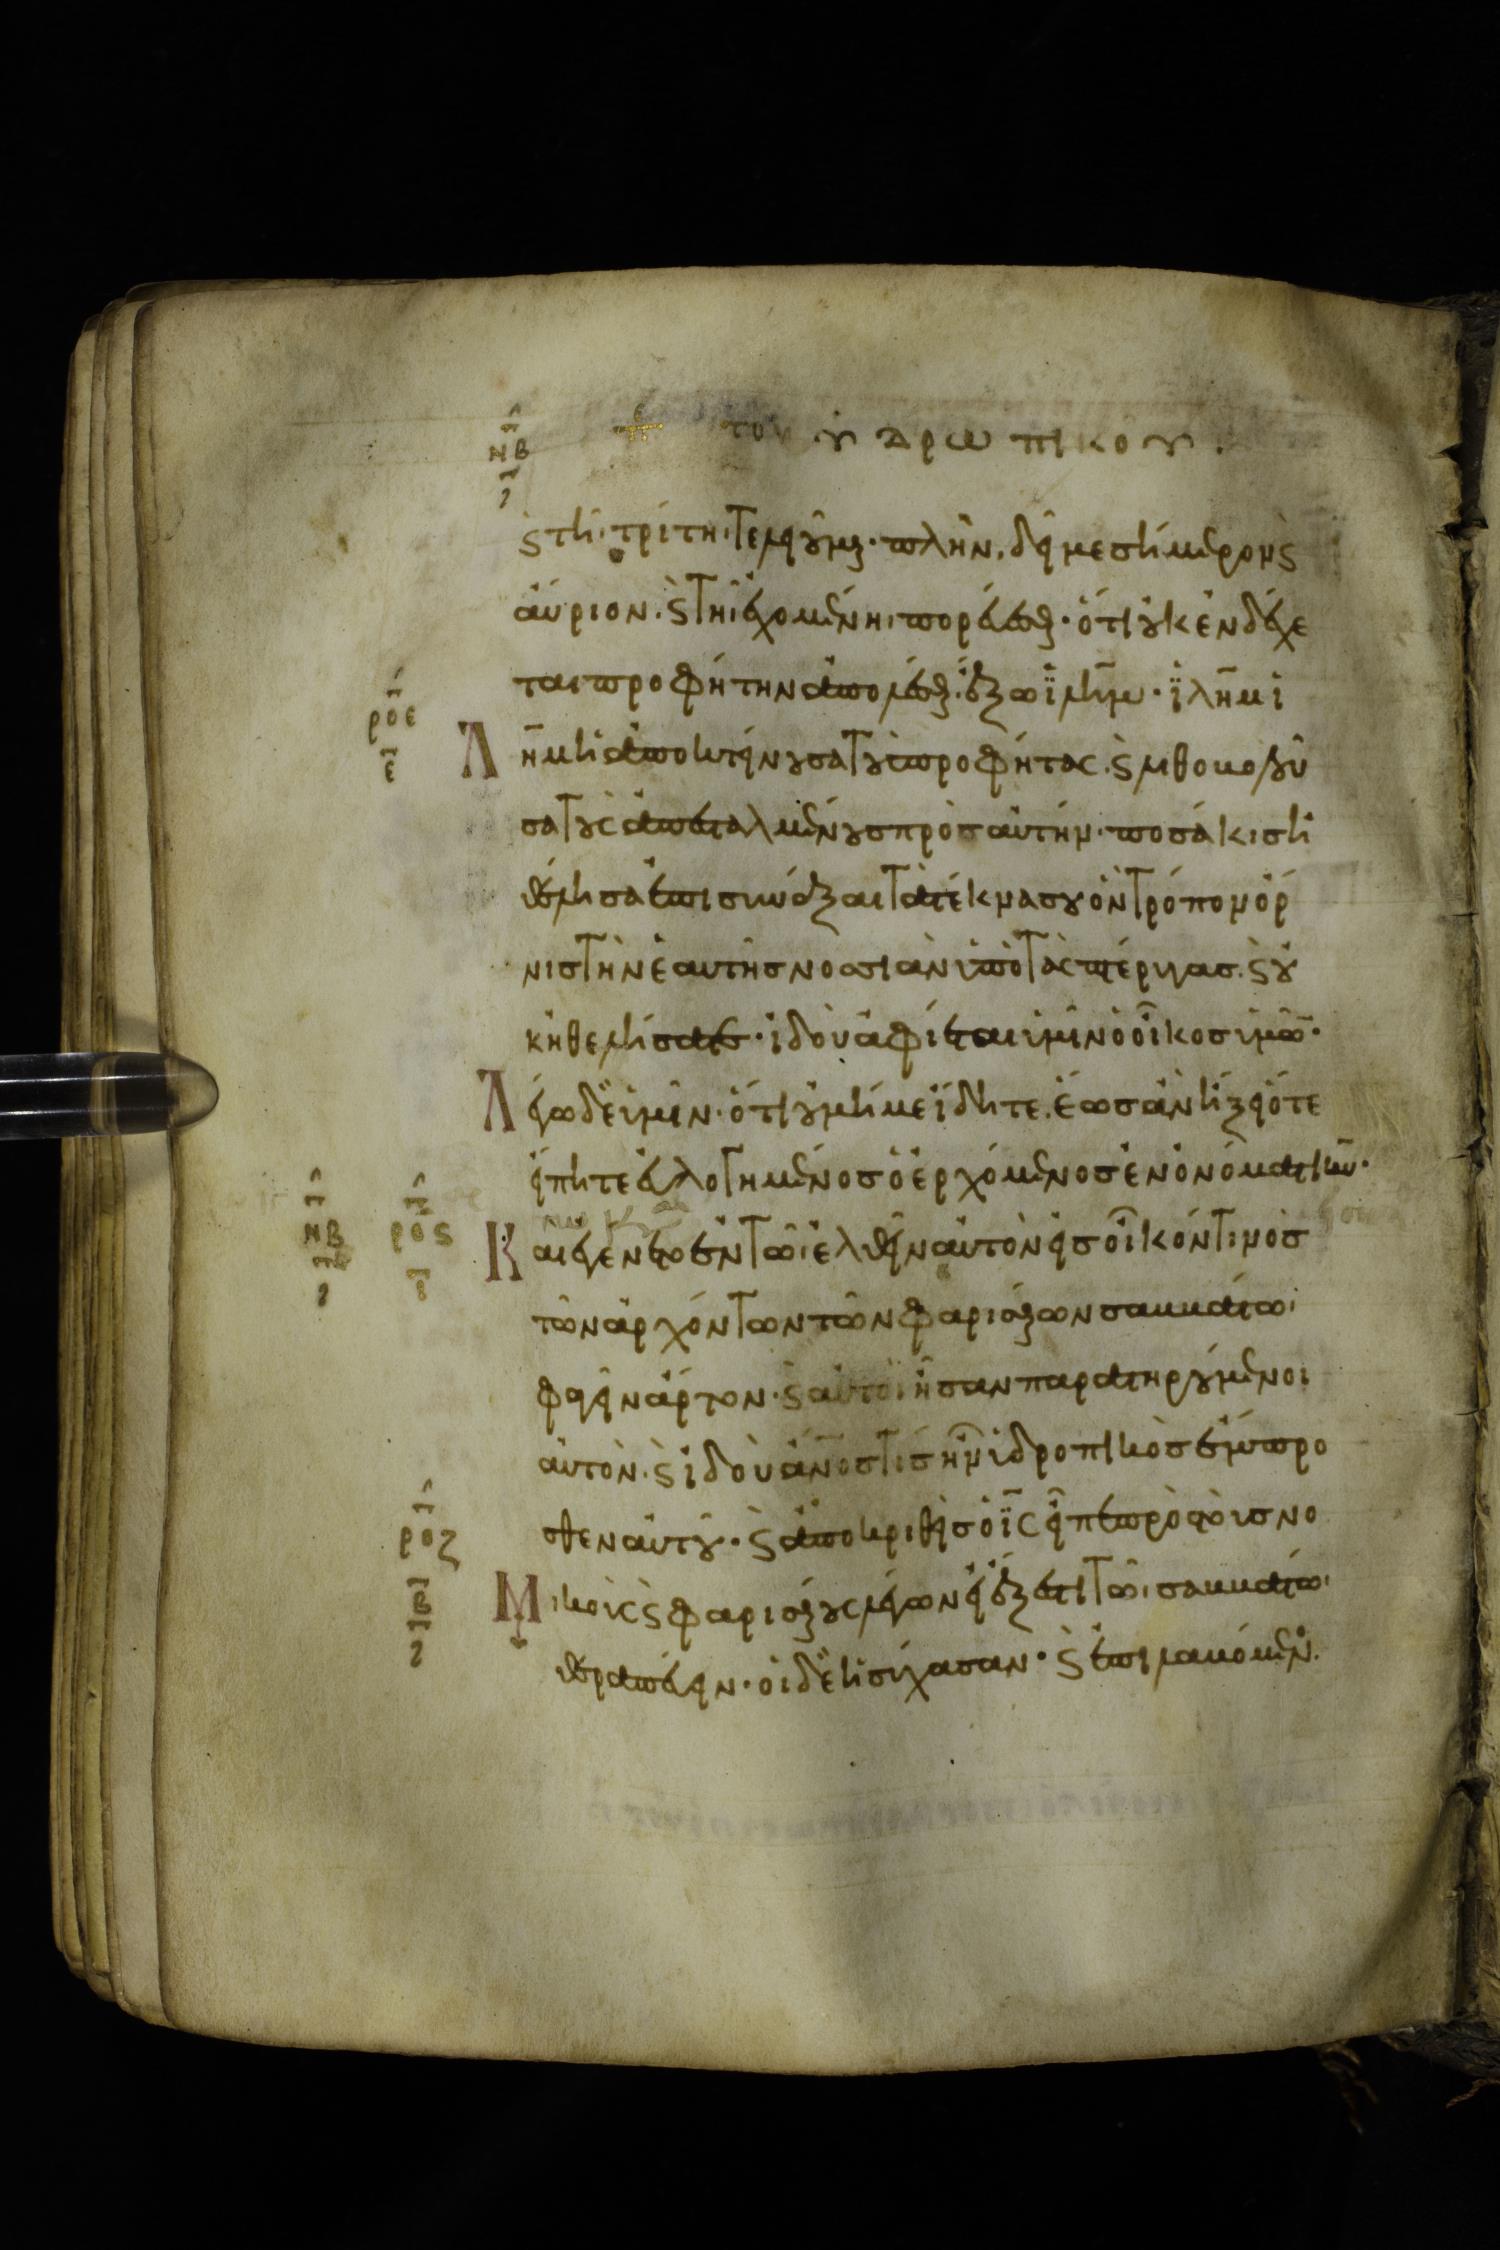 του υδρωπικου.
ϛ τῆ τρίτη τελειοῦμαι· πλὴν δεῖ με σήμερον ϛ
αὔριον· ϛ τῆι ἐχομένηι πορεύεσθαι· ὅτι οὐκ ἐνδέχε
ται προφήτην ἀπολέσθαι ἔξω ϊλῆμ· ϊλῆμ ϊ
λῆμ ἡ ἀποκτείνουσα τοὺς προφήτας· ϛ λιθοβολοῦ
σα τοὺς ἀπεσταλμένους πρὸσ αὐτήν· ποσάκισ ἠ
θέλησα ἐπισυνάξαι τὰ τέκνα σου ὃν τρόπον ὄρ
νισ τὴν ἑαυτῆσ νοσσιὰν ὑπὸ τὰς πτέρυγασ· ϛ οὐ
κ ἠθελήσατε· ἰδοὺ ἀφίεται ὑμῖν ὁ οἶκοσ ὑμῶ·
Λέγω δὲ ὑμῖν· ὅτι οὐ μή με ἴδητε· ἕωσ ἂν ἥξει ὅτε
εἴπητε εὐλογημένοσ ὁ ἐρχόμενοσ ἐν ὀνόματι κυ·
Και ἐγένετο ἐν τῶ ἐλθεῖν αὐτὸν εἰσ οἶκόν τινοσ
τῶν ἀρχόντων τῶν φαρισαίων σαββάτω
φαγεῖν ἄρτον· ϛ αὐτοὶ ἦσαν παρατηρούμενοι
αὐτὸν· ϛ ἰδοὺ ἄνοσ τισ ἦν ὑδροπικὸσ ἔμπρο
σθεν αὐτοῦ· ϛ ἀποκριθεὶσ ὁ ϊς εἶπε πρὸσ τοὺσ νο
Μικοὺς ϛ φαρισαίους λέγων εἰ ἔξεστι τῶ σαββάτω
θεραπεύειν· οἱ δὲ ἡσύχασαν· ϛ ἐπιλαβόμεν
ροε
ε
νβ
ροϛ
ι
ροζ
β